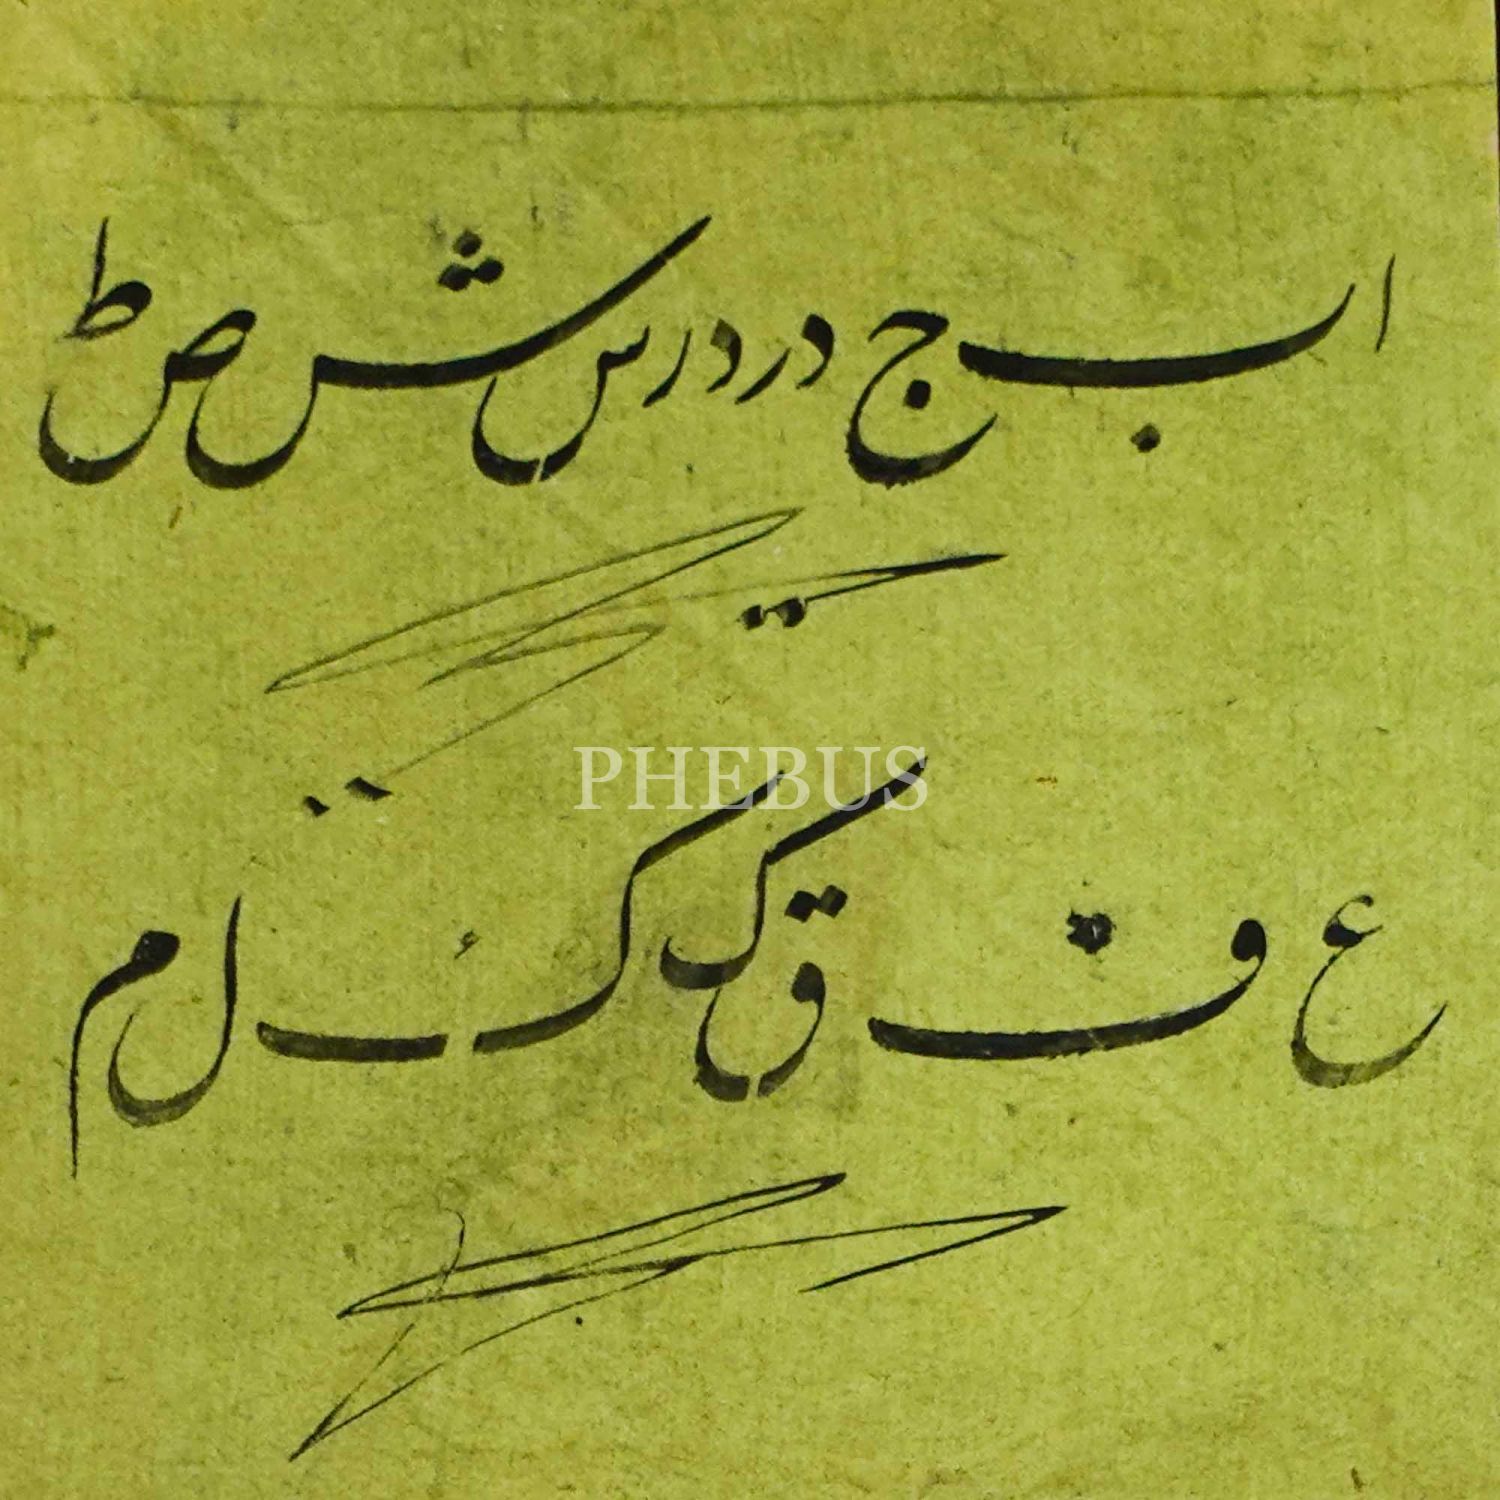 ا ب ج د ر د ر س ش ص ط
PHEBUS
ع ف ق ک ک ل م